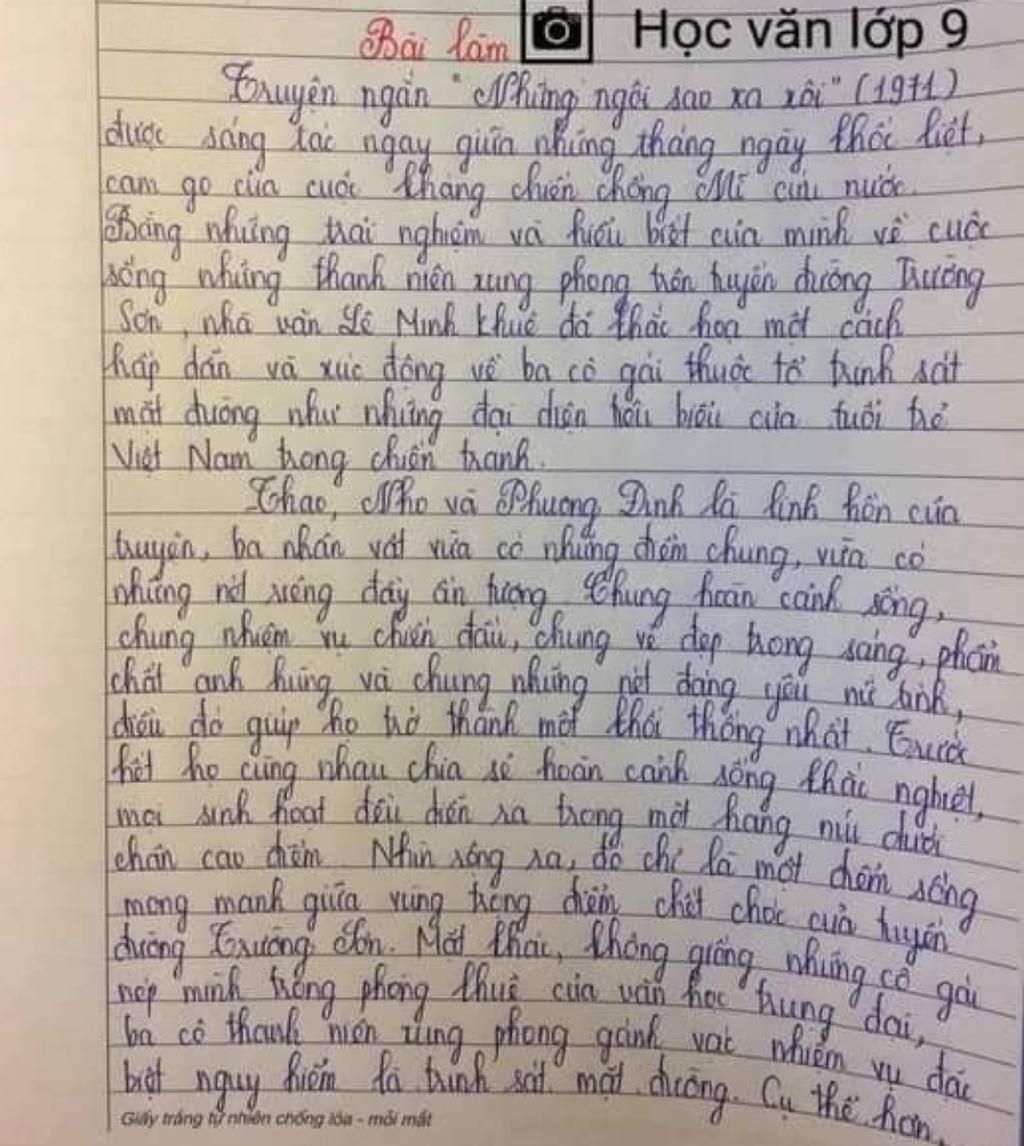 Bài làm
Học văn lớp 9
Truyện ngắn "Những ngôi sao xa xôi" (1971)
được sáng tác ngay giữa những tháng ngày khốc liệt,
cam go của cuộc kháng chiến chống Mĩ cứu nước.
Bằng những trải nghiệm và hiểu biết của mình về cuộc
sống những thanh niên xung phong trên tuyến đường Trường
Sơn, nhà văn Lê Minh Khuê đã khắc họa một cách
hấp dẫn và xúc động về ba cô gái thuộc tổ trinh sát
mặt đường như những đại diện tiêu biểu của tuổi trẻ
Việt Nam trong chiến tranh.
Thao, Nho và Phương Định là linh hồn của
truyện, ba nhân vật vừa có những điểm chung, vừa có
những nét riêng đầy ấn tượng. Chung hoàn cảnh sống,
chung nhiệm vụ chiến đấu, chung vẻ đẹp trong sáng, phẩm
chất anh hùng và chung những nét đáng yêu nữ tính,
điều đó giúp họ trở thành một khối thống nhất. Trước
hết họ cùng nhau chia sẻ hoàn cảnh sống khắc nghiệt,
mọi sinh hoạt đều diễn ra trong một hang núi dưới
chân cao điểm. Nhìn rộng ra, đó chỉ là một điểm sống
mong manh giữa vùng trọng điểm chết chóc của tuyến
đường Trường Sơn. Mặt khác, không giống những cô gái
nép mình trong phòng khuê của văn học trung đại,
ba cô thanh niên xung phong gánh vác nhiệm vụ đặc
biệt nguy hiểm là trinh sát mặt đường. Cụ thể hơn
Giấy trắng tự nhiên chống lóa - mỏi mắt